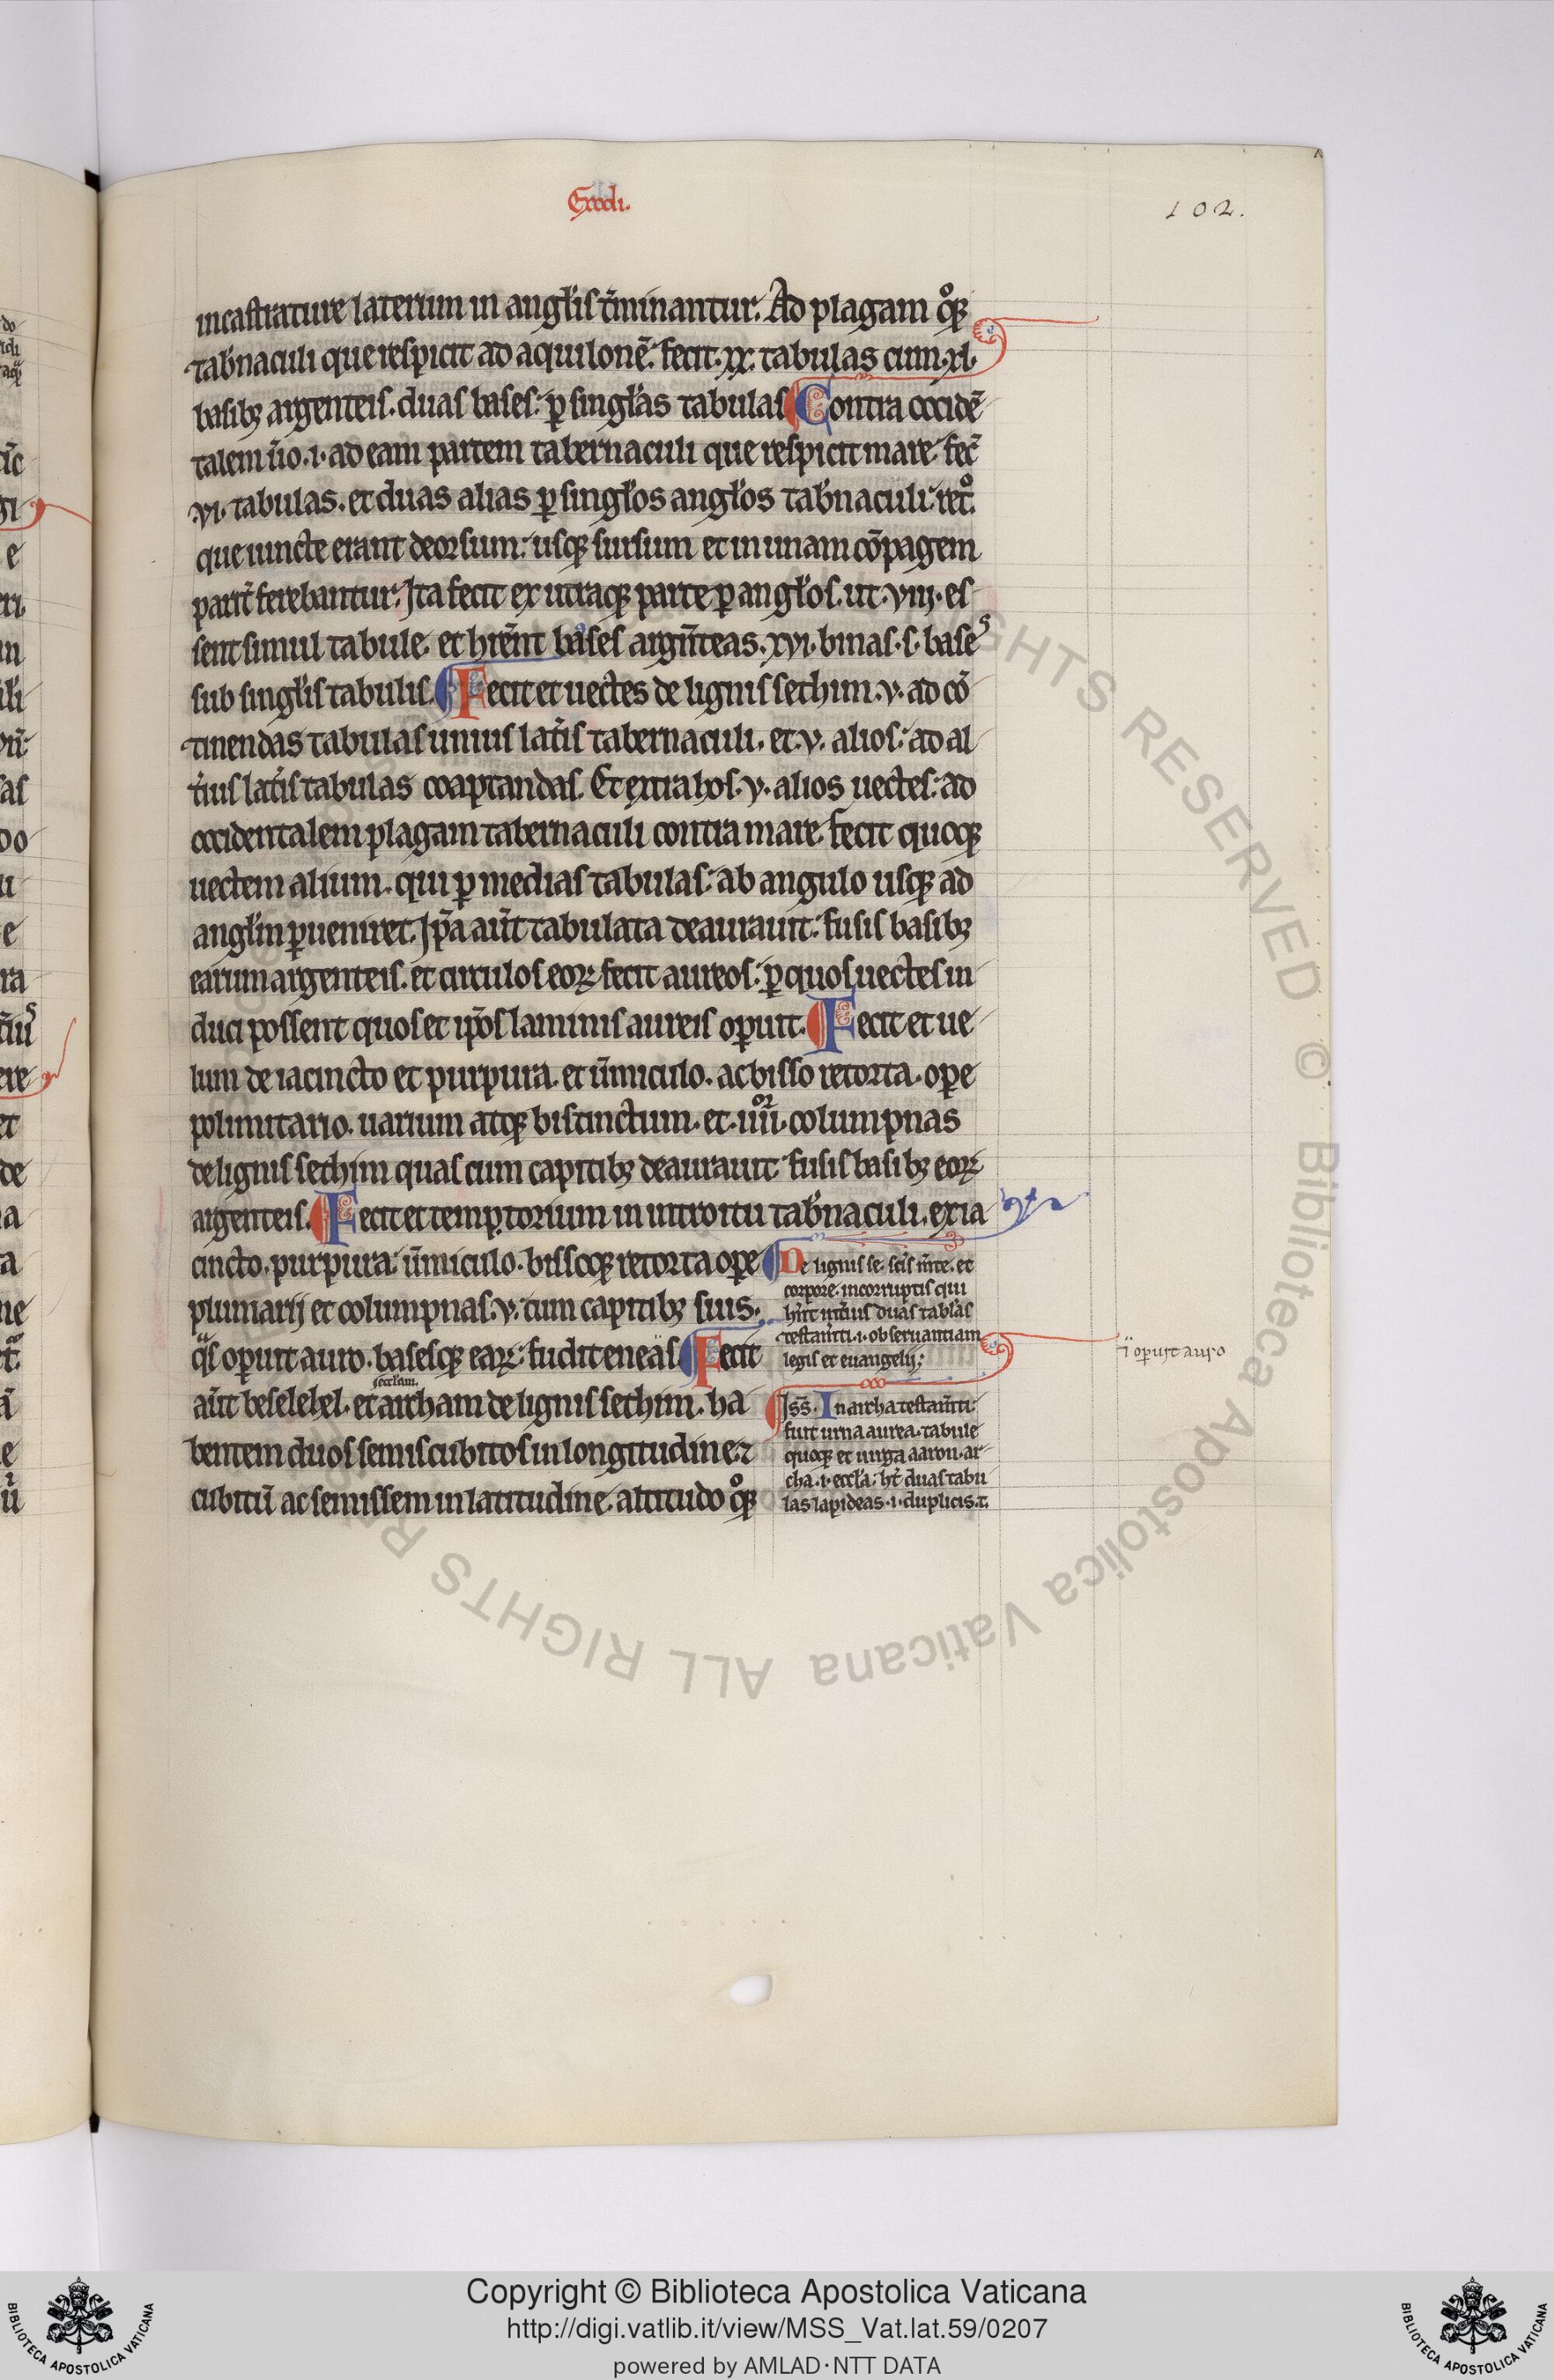 Exodi.
102.
incastrature laterum in angľis t̃minantur. Ad plagam qͦꝫ
tab̃naculi que respicit ad aquilonē. fecit. xx. tabulas cum. xl.
basibꝫ argenteis. duas bases. ꝑ singľas tabulas Contra occidē
talem ũo. i. ad eam partem tabernaculi que respicit mare. fec̃
vi. tabulas. et duas alias ꝑ singľos angľos tab̃naculi. retͦ.
que iuncte erant deorsum. usqꝫ sursum et in unam cōpagem
parit̃ ferebantur. Ita fecit ex utraqꝫ parte ꝑ angľos. ut. viij. es
sent simul tabule. et hr̃ent bases argñteas. xvi. binas. s. bases
sub singľis tabulis. Fecit et uectes de lignis sethim. v. ad cō
tinendas tabulas unius lat̃is tabernaculi. et. v. alios. ad al
t̃ius lat̃is tabulas coaptandas. Et extra hos. v. alios uectes. ad
occidentalem plagam tabernaculi contra mare. fecit quoqꝫ
uectem alium. qui ꝑ medias tabulas. ab angulo usqꝫ ad
angľm ꝑueniret. Ip̃a aũt tabulata deaurauit. fusis basibꝫ
earum argenteis. et circulos eoꝝ fecit aureos. ꝑ quos uectes in
duci possent quos et ip̃os laminis aureis oꝑuit. Fecit et ue
lum de iacincto et purpura. et ũmiculo. ac bisso retorta. oꝑe
polimitario. uarium atqꝫ distinctum. et. iiii. columpnas
de lignis sethim quas cum capitibꝫ deaurauit fusis basibꝫ eoꝝ
argenteis. Fecit et temptorium in introitu tab̃naculi. ex ia
cincto. purpura. ũmiculo. bissoqꝫ retorta oꝑe
plumarij et columpnas. v. cum capitibꝫ suis.
qͣs oꝑuit auro. basesqꝫ eaꝝ. fudit eneas Fecit
eccľam.
aũt beselehel. et archam de lignis sethim. ha
bentem duos semis cubitos in longitudine ⁊
cubitū ac semissem in latitudine. altitudo qͦꝫ
De lignis se. sc̃is m̃te. et
corpore. incorruptis qui
hñt int̃ius duas tabľas
testam̃ti. i. obseruantiam
legis et euangelij.
Iss̃. In archa testam̃ti
fuit urna aurea. tabule
quoqꝫ et uirga aaron. ar
cha. i. eccľa. ht̃ duas tabu
las lapideas. i. duplicis. t.
oꝑuit auro
Copyright © Biblioteca Apostolica Vaticana
http://digi.vatlib.it/view/MSS_Vat.lat.59/0207
powered by AMLAD·NTT DATA
BIBLIOTECA APOSTOLICA VATICANA
BIBLIOTECA APOSTOLICA VATICANA
© Biblioteca Apostolica Vaticana ALL RIGHTS RESERVED